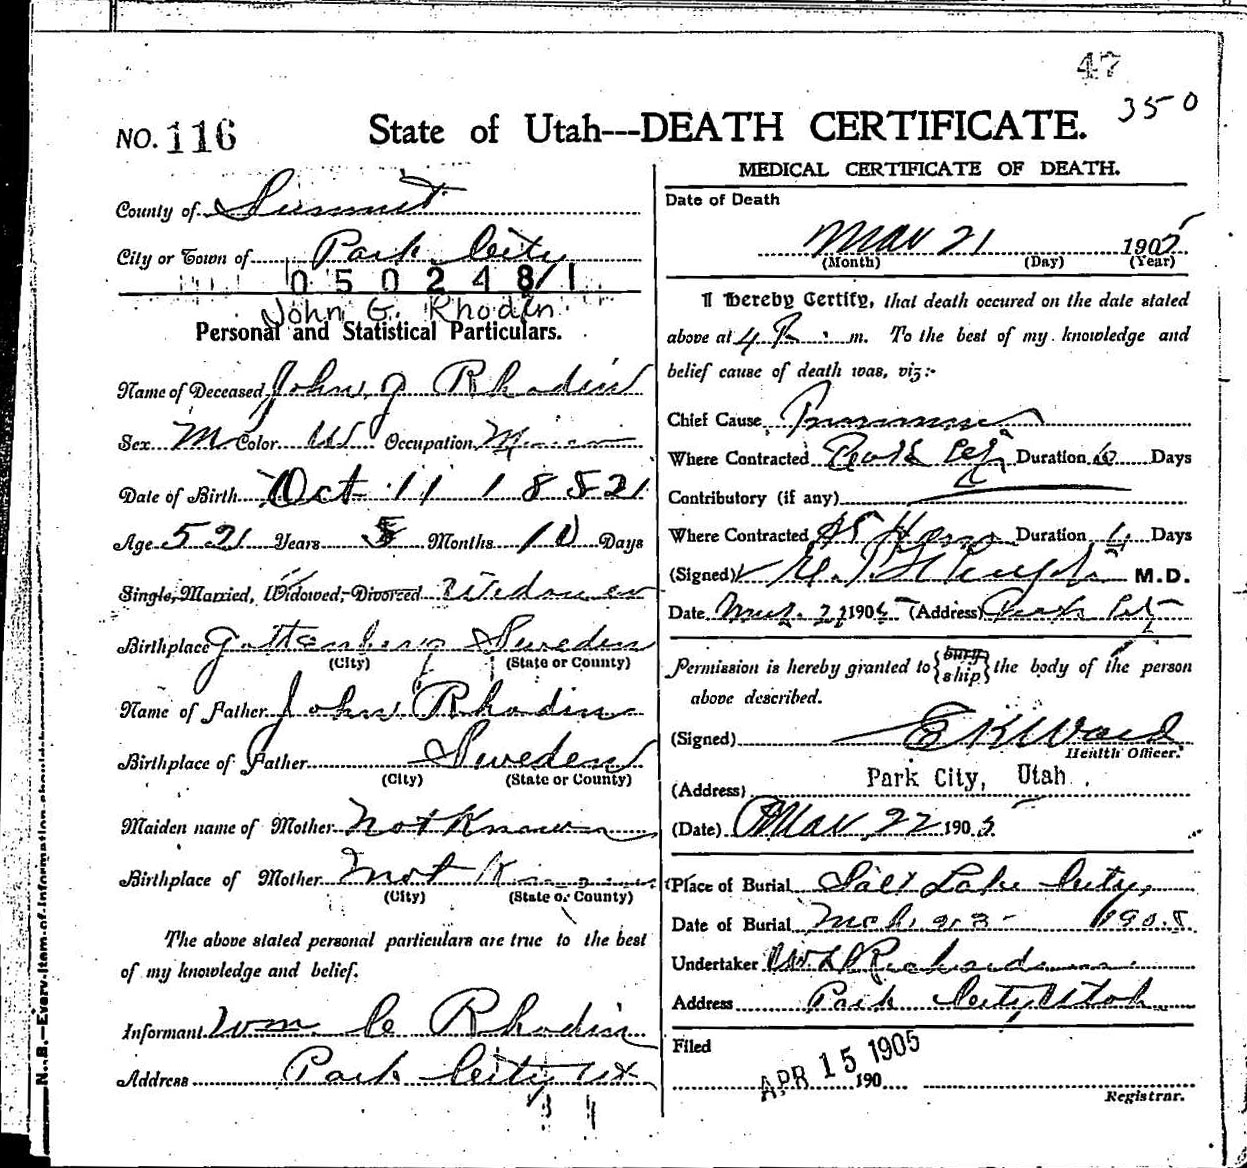 47
350
NO. 116 State of Utah---DEATH CERTIFICATE.
County of Summit
City or Town of Park City
0 5 0 2 4 8 / 1
John G. Rhodin
Personal and Statistical Particulars.
Name of Deceased John G Rhodin
Sex M Color W Occupation
Date of Birth Oct 11 1852
Age 52 Years 5 Months 10 Days
Single, Married, Widowed, Divorced Widower
Birthplace Gottenberg Sweden
(City) (State or County)
Name of Father John Rhodin
Birthplace of Father Sweden
(City) (State or County)
Maiden name of Mother Not Known
Birthplace of Mother Not Known
(City) (State or County)
The above stated personal particulars are true to the best
of my knowledge and belief.
Informant Wm C Rhodin
Address Park City Ut
N. B.—Every item of information should be
MEDICAL CERTIFICATE OF DEATH.
Date of Death
Mar 21 1905
(Month) (Day) (Year)
I hereby Certify, that death occured on the date stated
above at 4 P. m. To the best of my knowledge and
belief cause of death was, viz:-
Chief Cause
Where Contracted Park City Duration 6 Days
Contributory (if any)
Where Contracted Duration Days
(Signed) M.D.
Date Mch. 21 1905 (Address) Park City
Permission is hereby granted to {bury ship} the body of the person
above described.
(Signed) E K Ward
Health Officer.
(Address) Park City, Utah.
(Date) Mar 22 1905
Place of Burial Salt Lake City,
Date of Burial Mch. 23- 1905
Undertaker
Address Park City Utah
Filed
APR 15 1905
190
Registrar.